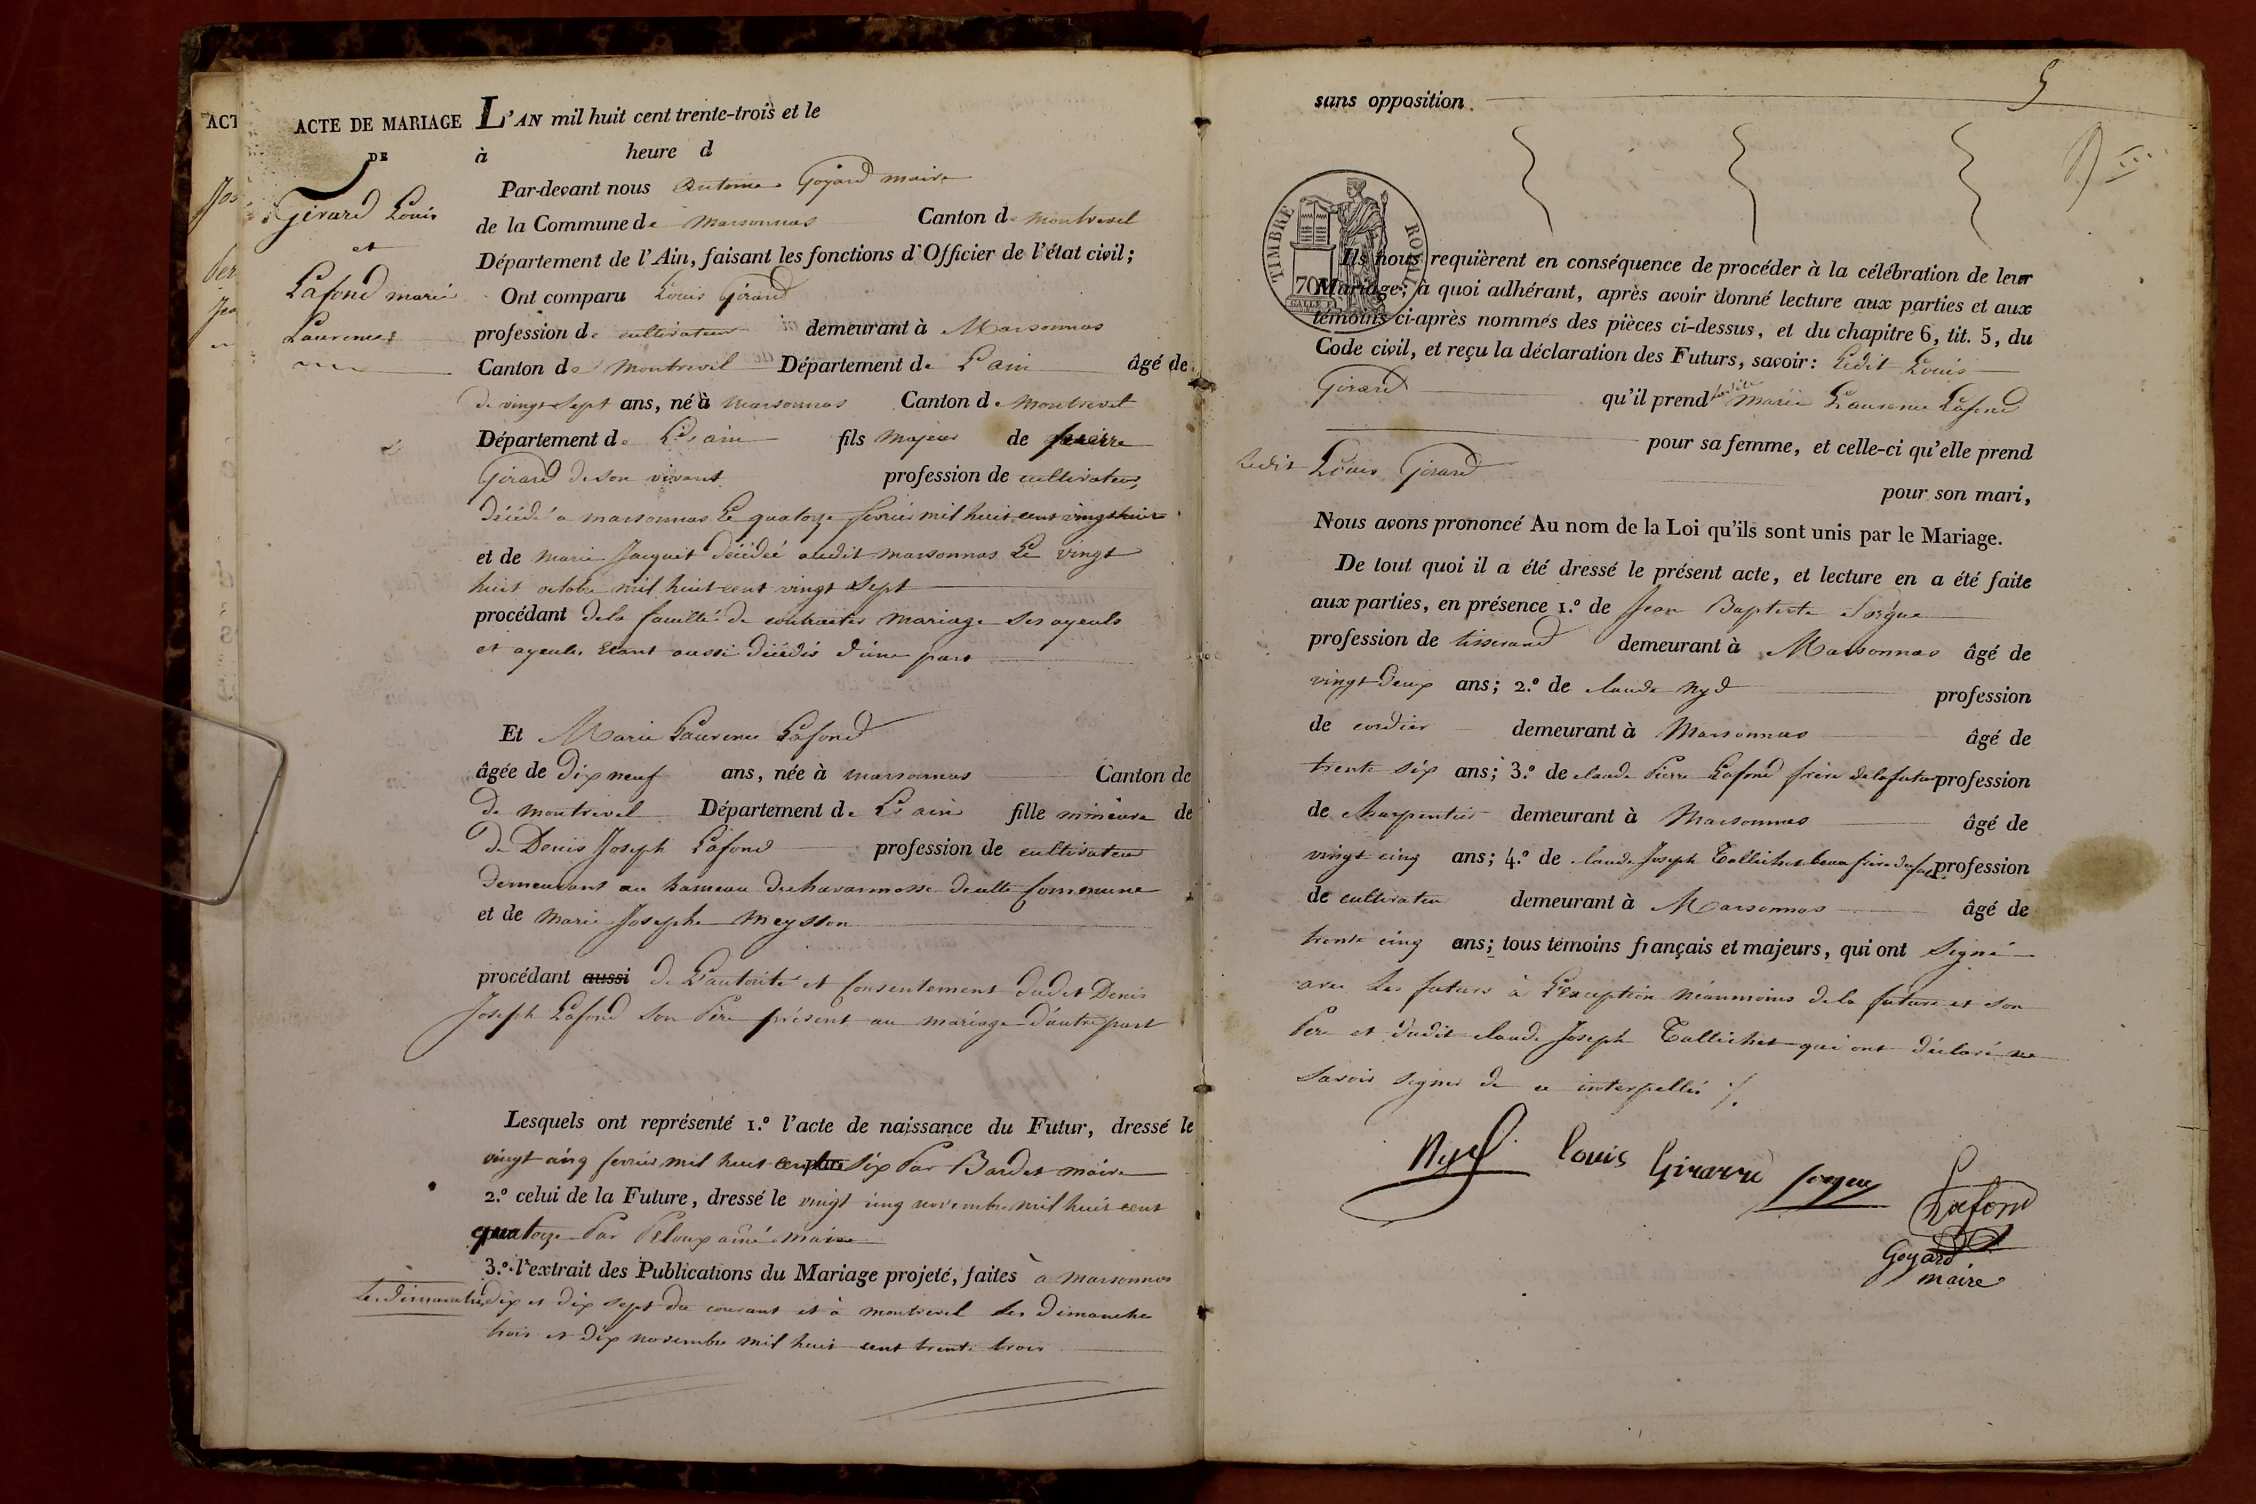 ACT
ACTE DE MARIAGE
DE
Girard Louis
et
Lafond marie
Laurence
L'AN mil huit cent trente-trois et le
à heure d
Par-devant nous Antoine Goyard maire
de la Commune de marsonnas Canton de montrevel
Département de l'Ain, faisant les fonctions d'Officier de l'état civil;
Ont comparu Louis Girard
profession de cultivateur demeurant à Marsonnas
Canton de montrevel Département de L'ain âgé de
de vingt sept ans, né à marsonnas Canton de montrevel
Département de L'ain fils majeur de pierre
Girard de son vivant profession de cultivateur,
décédé a marsonnas Le quatorze fevrier mil huit cent vingt huit
et de marie Jacquet décédée audit marsonnas Le vingt
huit octobre mil huit cent vingt sept
procédant de la faculté de contracter mariage ses ayeuls
et ayeules étant aussi décédés d'une part
Et Marie Laurence Lafond
âgée de dix neuf ans, née à marsonnas Canton de
de montrevel Département de L'ain fille mineure de
de Denis Joseph Lafond profession de cultivateur
demeurant au hameau de cette Commune
et de Marie Josephe Meysson
procédant aussi de L'autorité et Consentement dudit Denis
Joseph Lafond Son Père présent au mariage d'autre part
Lesquels ont représenté 1.º l'acte de naissance du Futur, dressé le
vingt cinq fevrier mil huit cent six Par Bardet maire
2.º celui de la Future, dressé le vingt cinq novembre mil huit cent
quatorze Par Peloux ainé maire
3.º l'extrait des Publications du Mariage projeté, faites à marsonnas
Les dimanches dix et dix sept du courant et à montrevel les dimanche
trois et dix novembre mil huit cent trente trois
5
sans opposition.
TIMBRE ROYAL
70
Ils nous requièrent en conséquence de procéder à la célébration de leur
Mariage; à quoi adhérant, après avoir donné lecture aux parties et aux
témoins ci-après nommés des pièces ci-dessus, et du chapitre 6, tit. 5, du
Code civil, et reçu la déclaration des Futurs, savoir: Ledit Louis
Girard qu'il prend ladite Marie Laurence Lafond
pour sa femme, et celle-ci qu'elle prend
Ledit Louis Girard
pour son mari,
Nous avons prononcé Au nom de la Loi qu'ils sont unis par le Mariage.
De tout quoi il a été dressé le présent acte, et lecture en a été faite
aux parties, en présence 1.º de Jean Baptiste Sorgue
profession de tisserand demeurant à Marsonnas âgé de
vingt deux ans; 2.º de claude Nyd profession
de cordier demeurant à Marsonnas âgé de
trente six ans; 3.º de claude Pierre Lafond frère de la future profession
de charpentier demeurant à Marsonnas âgé de
vingt cinq ans; 4.º de claude Joseph Tallichet beau frère du futur profession
de cultivateur demeurant à Marsonnas âgé de
trente cinq ans; tous témoins français et majeurs, qui ont Signé
avec Les futurs à L'exception néanmoins de la future et son
Père et dudit claude Joseph Tallichet qui ont déclaré ne
savoir signer de ce interpellés ./.
Nyd Louis Girard Sorgue Lafond
Goyard
maire